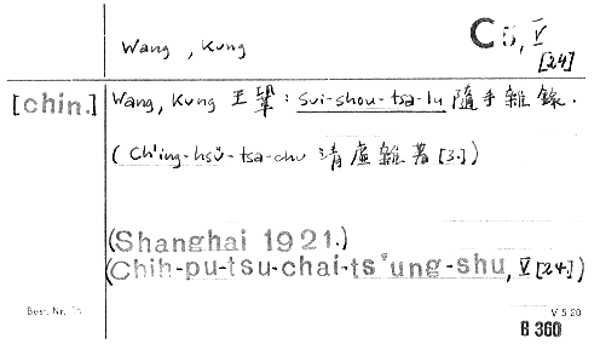 Wang , Kung
C 5, V
[24]
[chin.] Wang, Kung 王鞏 : sui-shou-tsa-lu 隨手雜錄.
(Ch'ing-hsü-tsa-chu 清虛雜著 [3.])
(Shanghai 1921.)
(Chih-pu-tsu-chai-ts'ung-shu, V [24.])
Best. Nr.
V 5 20
B 360